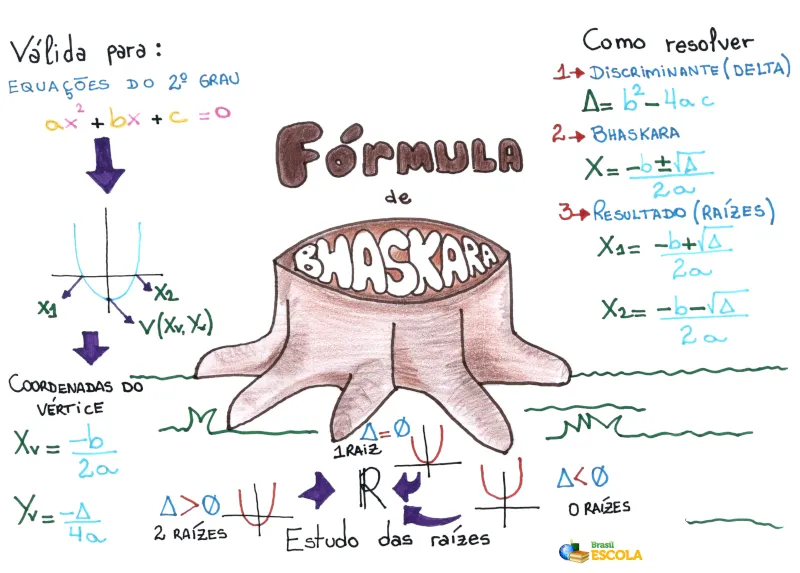 Válida para:
EQUAÇÕES DO 2º GRAU
ax² + bx + c = 0
X1
X2
V(Xv, Yv)
COORDENADAS DO
VÉRTICE
Xv = -b
2a
Yv = -Δ
4a
FÓRMULA
de
BHASKARA
Como resolver
1→ DISCRIMINANTE (DELTA)
Δ = b² - 4ac
2→ BHASKARA
X = -b ± √Δ
2a
3→ RESULTADO (RAÍZES)
X1 = -b + √Δ
2a
X2 = -b - √Δ
2a
Δ = Ø
1 RAIZ
Δ > Ø
2 RAÍZES
ℝ
Δ < Ø
0 RAÍZES
Estudo das raízes
Brasil
ESCOLA